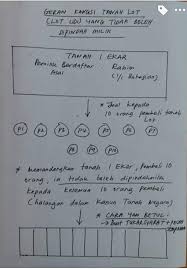 GERAN KONGSI TANAH LOT
(LOT LIDI) YANG TIDAK BOLEH
DIPINDAH MILIK
TANAH 1 EKAR
Pemilik Berdaftar
Asal
Rahim
* Jual kepada
10 orang pembeli tanah
Lot
P1
P2
P3
P4
P5
P6
P7
P8
P9
P10
* memandangkan tanah 1 EKAR, pembeli 10
orang, ia tidak boleh dipindahmilik
kepada kesemua 10 orang pembeli
(Halangan dalam Kanun Tanah Negara)
* CARA YANG BETUL: